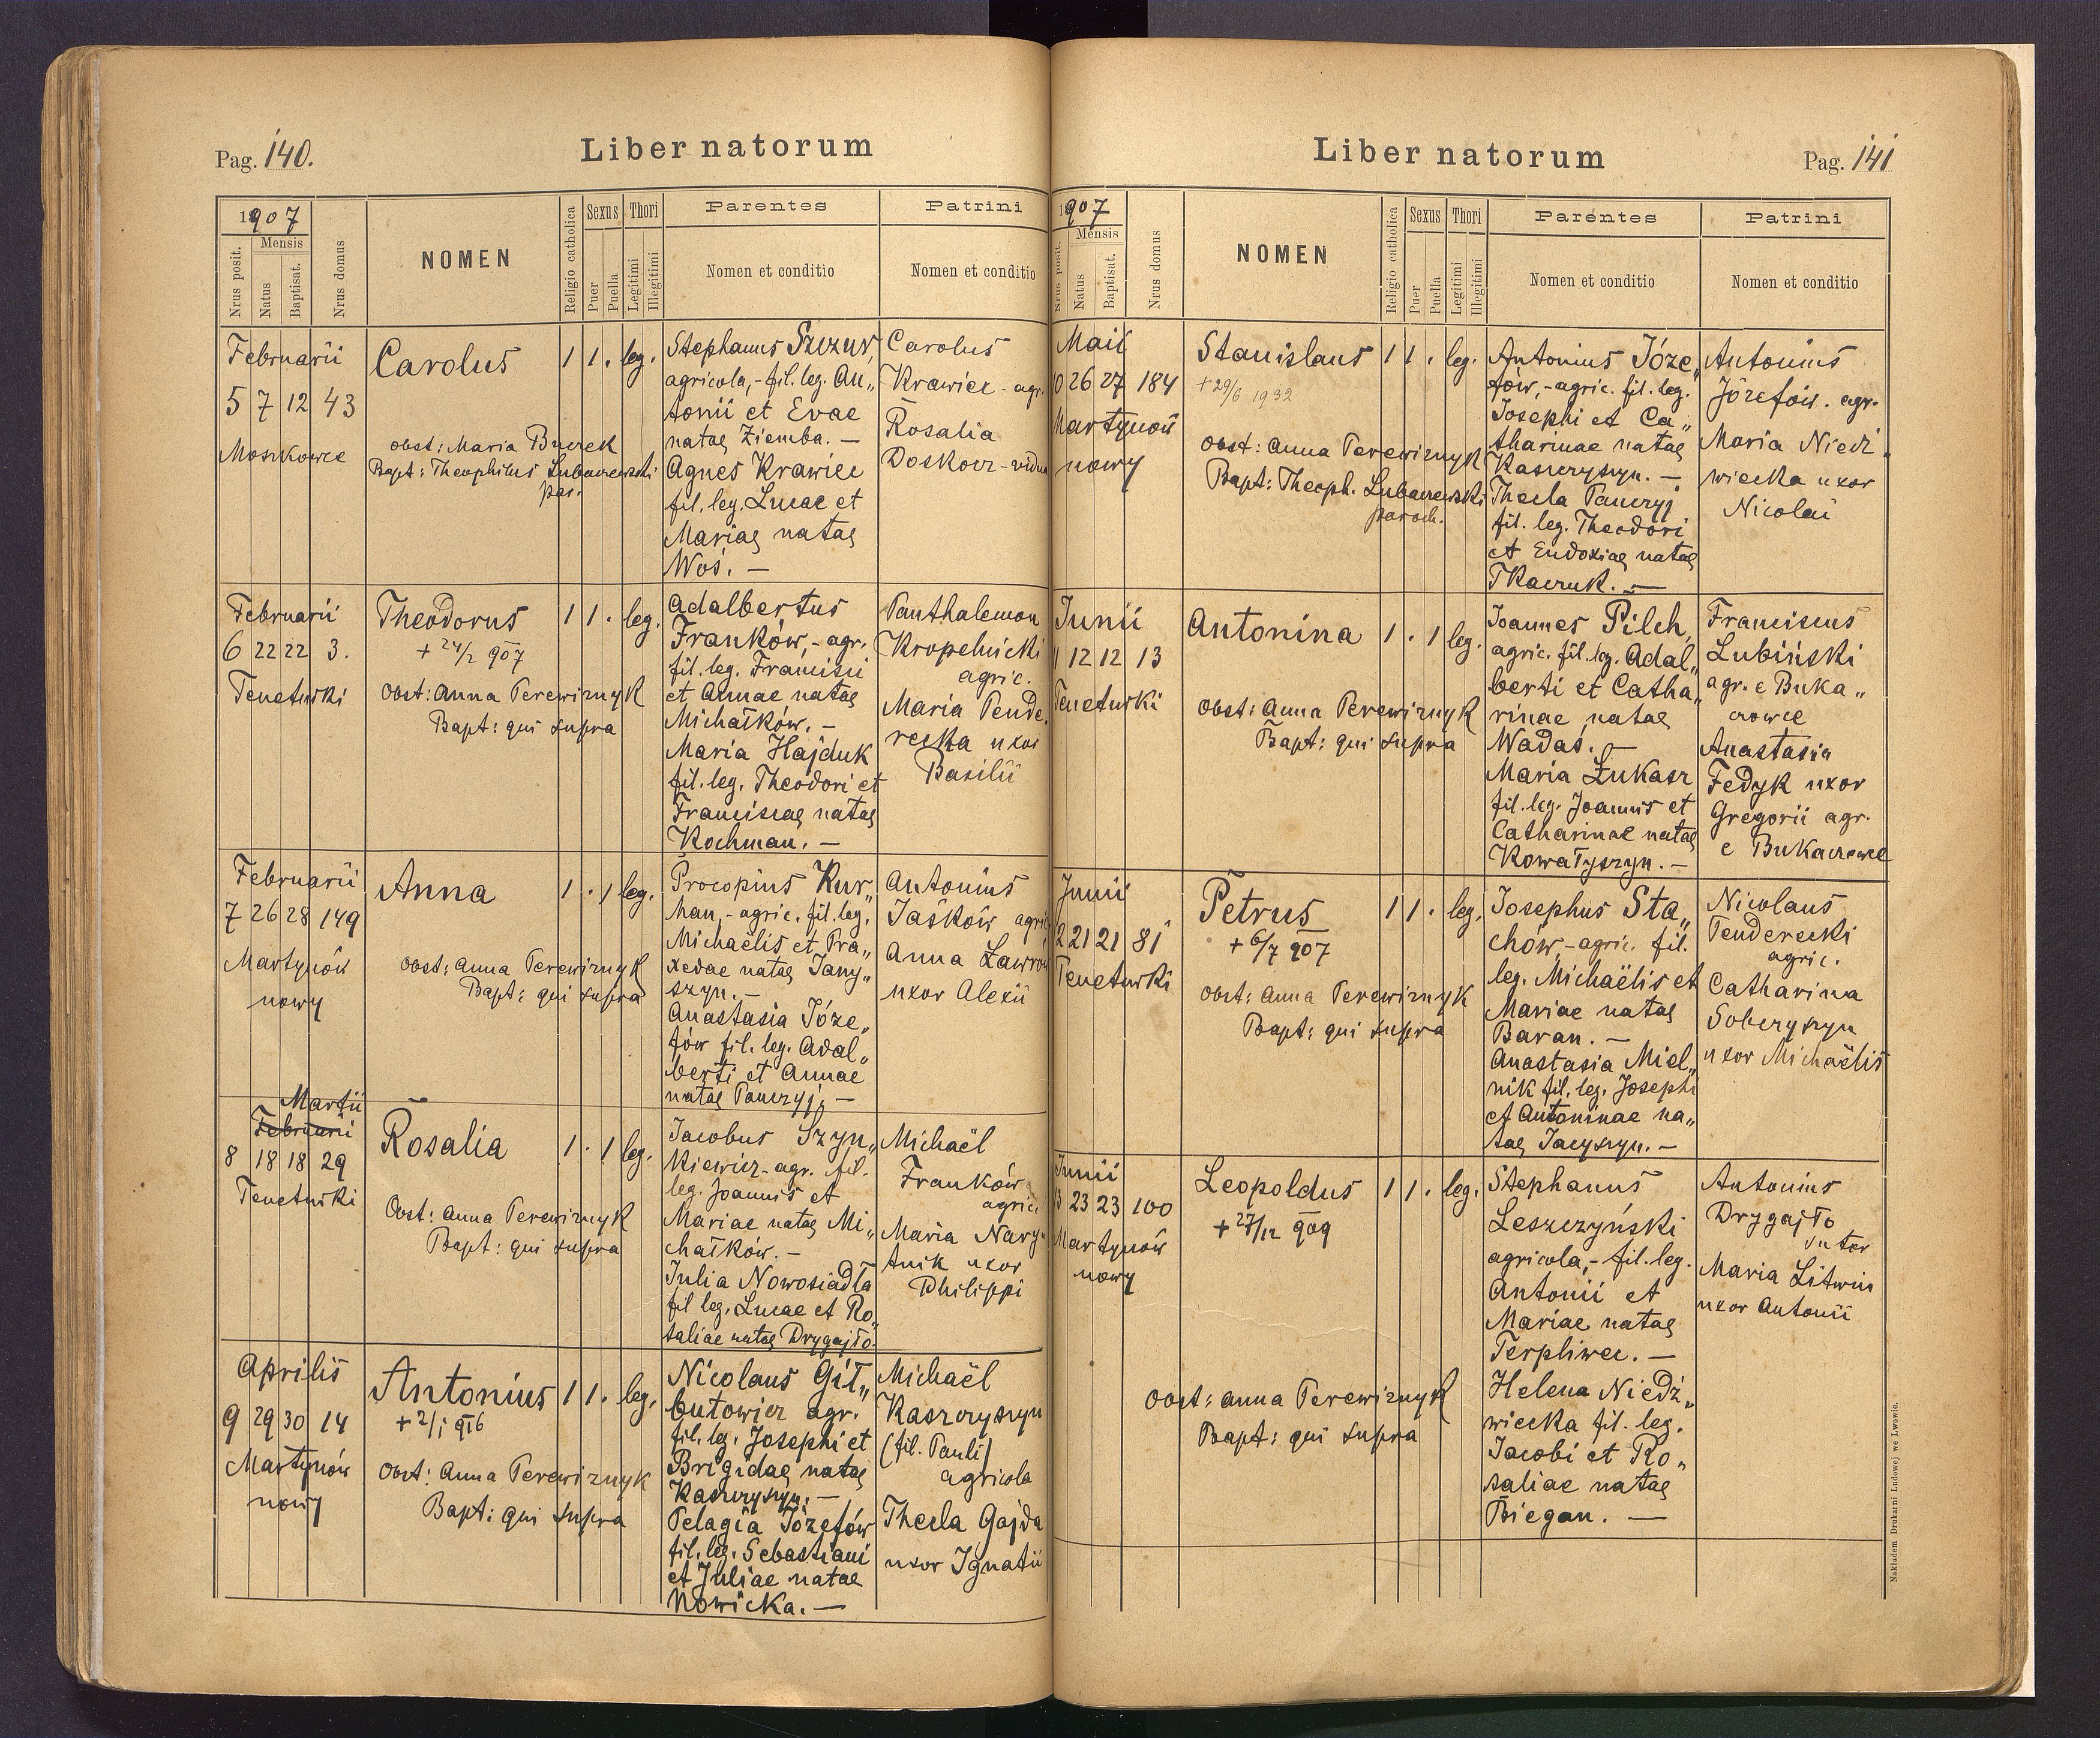 Pag. 140.
Liber natorum
1907
Nrus posit.
Mensis
Natus
Baptisat.
Nrus domus
NOMEN
Religio catholica
Sexus
Puer
Puella
Thori
Legitimi
Illegitimi
Parentes
Nomen et conditio
Patrini
Nomen et conditio
Februarii
5 7 12 43
Moszkowce
Carolus
obst: Maria Burek
Bapt: Theophilus Lubaczewski
par.
1 1 . leg.
Stephanus Szczur
agricola,- fil. leg. An„
tonii et Evae
natae Ziemba. —
Agnes Krawiec
fil. leg. Lucae et
Mariae natae
Woś. —
Carolus
Krawiec - agr.
Rosalia
Doskocz - vidua
Februarii
6 22 22 3.
Tenetniki
Theodorus
+ 24/2 907
Obst: Anna Perewiznyk
Bapt: qui supra
1 1 . leg.
Adalbertus
Franków, - agr.
fil. leg. Francisci
et Annae natae
Michałków. —
Maria Hajduk
fil. leg. Theodori et
Franciscae natae
Kochman. —
Panthalemon
Kropelnicki
agric.
Maria Pende„
recka uxor
Basilii
Februarii
7 26 28 149
Martynów
nowy
Anna
obst: Anna Perewiznyk
Bapt: qui supra
1 . 1 leg.
Procopius Kur„
han, - agric. fil. leg.
Michaëlis et Pra„
xedae natae Jany„
szyn. —
Anastasia Józe„
fów fil. leg. Adal„
berti et Annae
natae Panczyj. —
Antonius
Jaśków agric.
Anna Lawrów
uxor Alexii
Martii
Februarii
8 18 18 29
Tenetniki
Rosalia
Obst: Anna Perewiznyk
Bapt: qui supra
1 . 1 leg.
Jacobus Szyn„
kiewicz - agr. fil.
leg. Joannis et
Mariae natae Mi„
chałków. —
Julia Nowosiadła
fil leg. Lucae et Ro„
saliae natae Drygajło.
Michaël
Franków
agric.
Maria Nary„
tnik uxor
Philippi
Aprilis
9 29 30 14
Martynów
nowy
Antonius
+ 2/1 916
Obst: Anna Perewiznyk
Bapt: qui supra
1 1 . leg.
Nicolaus Git„
butowicz agr.
fil. leg. Josephi et
Brigidae natae
Kaszczyszyn. —
Pelagia Józefów
fil. leg. Sebastiani
et Juliae natae
Nowicka. —
Michaël
Kaszczyszyn
(fil. Pauli)
agricola
Thecla Gajda
uxor Ignatii
Liber natorum
Pag. 141
1907
Nrus posit.
Mensis
Natus
Baptisat.
Nrus domus
NOMEN
Religio catholica
Sexus
Puer
Puella
Thori
Legitimi
Illegitimi
Parentes
Nomen et conditio
Patrini
Nomen et conditio
Maii
10 26 27 184
Martynów
nowy
Stanislaus
+ 29/6 1932
Obst: Anna Perewiznyk
Bapt: Theoph. Lubaczewski
paroch.
1 1 . leg.
Antonius Józe„
fów, - agric. fil. leg.
Josephi et Ca„
tharinae natae
Kaszczyszyn. —
Thecla Panczyj
fil. leg. Theodori
et Eudoxiae natae
Tkaczuk. —
Antonius
Józefów. agr.
Maria Niedź„
wiecka uxor
Nicolai
Junii
1 12 12 13
Tenetniki
Antonina
Obst: Anna Perewiznyk
Bapt: qui supra
1 . 1 leg.
Joannes Pilch,
agric. fil. leg. Adal„
berti et Catha„
rinae natae
Wadaś. —
Maria Łukasz
fil. leg. Joannis et
Catharinae natae
Kowałyszyn. —
Franciscus
Lubiński
agr. e Buka„
czowce
Anastasia
Fedyk uxor
Gregorii agr.
e Bukaczowce
Junii
2 21 21 81
Tenetniki
Petrus
+ 6/7 907
Obst: Anna Perewiznyk
Bapt: qui supra
1 1 . leg.
Josephus Sta„
chów, - agric. fil.
leg. Michaëlis et
Mariae natae
Baran. —
Anastasia Miel„
nik fil. leg. Josephi
et Antoninae na„
tae Jacyszyn. —
Nicolaus
Penderecki
agric.
Catharina
Soberyszyn
uxor Michaëlis
Junii
3 23 23 100
Martynów
nowy
Leopoldus
+ 27/12 909
Obst: Anna Perewiznyk
Bapt: qui supra
1 1 . leg.
Stephanus
Leszczyński
agricola, - fil. leg.
Antonii et
Mariae natae
Terpliwec. —
Helena Niedź„
wiecka fil. leg.
Jacobi et Ro„
saliae natae
Biegan. —
Antonius
Drygajło
sutor
Maria Litwin
uxor Antonii
Nakładem Drukarni Ludowej we Lwowie.